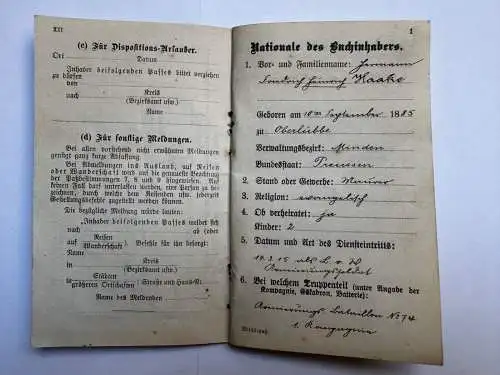 XII
(c) Für Dispositions-Urlauber.
Ort
Datum
Inhaber beifolgenden Passes bittet verziehen
zu dürfen
von
nach
Kreis
(Bezirksamt usw.)
Name
(d) Für sonstige Meldungen.
Bei allen vorstehend nicht erwähnten Meldungen
genügt ganz kurze Abfassung.
Bei Abmeldungen ins Ausland, auf Reisen
oder Wanderschaft wird auf die genaueste Beachtung
der Paßbestimmungen 7, 8 und 9 hingewiesen. Auf
keinen Fall darf unterlassen werden, eine Person zu be-
zeichnen, durch welche dem Reisenden usw. jederzeit
Gestellungsbefehle zugestellt werden können.
Die bezügliche Meldung würde lauten:
„Inhaber beifolgenden Passes meldet sich
nach ab (oder
auf Reisen
Wanderschaft). Befehle für ihn besorgt:
Name
in
Kreis
(Bezirksamt usw.)
in Städten
größeren Ortschaften Straße und Haus-Nr.
Name des Meldenden
1
Nationale des Buchinhabers.
1. Vor- und Familienname: Hermann
Friedrich Heinrich Kaake
Geboren am 10ten September 1885
zu Oberlübbe
Verwaltungsbezirk: Minden
Bundesstaat: Preussen
2. Stand oder Gewerbe: Maurer
3. Religion: evangelisch
4. Ob verheiratet: ja
Kinder: 2
5. Datum und Art des Diensteintritts:
als L. d.
Armierungssoldat
6. Bei welchem Truppenteil (unter Angabe der
Kompagnie, Eskadron, Batterie):
Armierungs-Bataillon No 74
1. Kompagnie
Militärpaß.